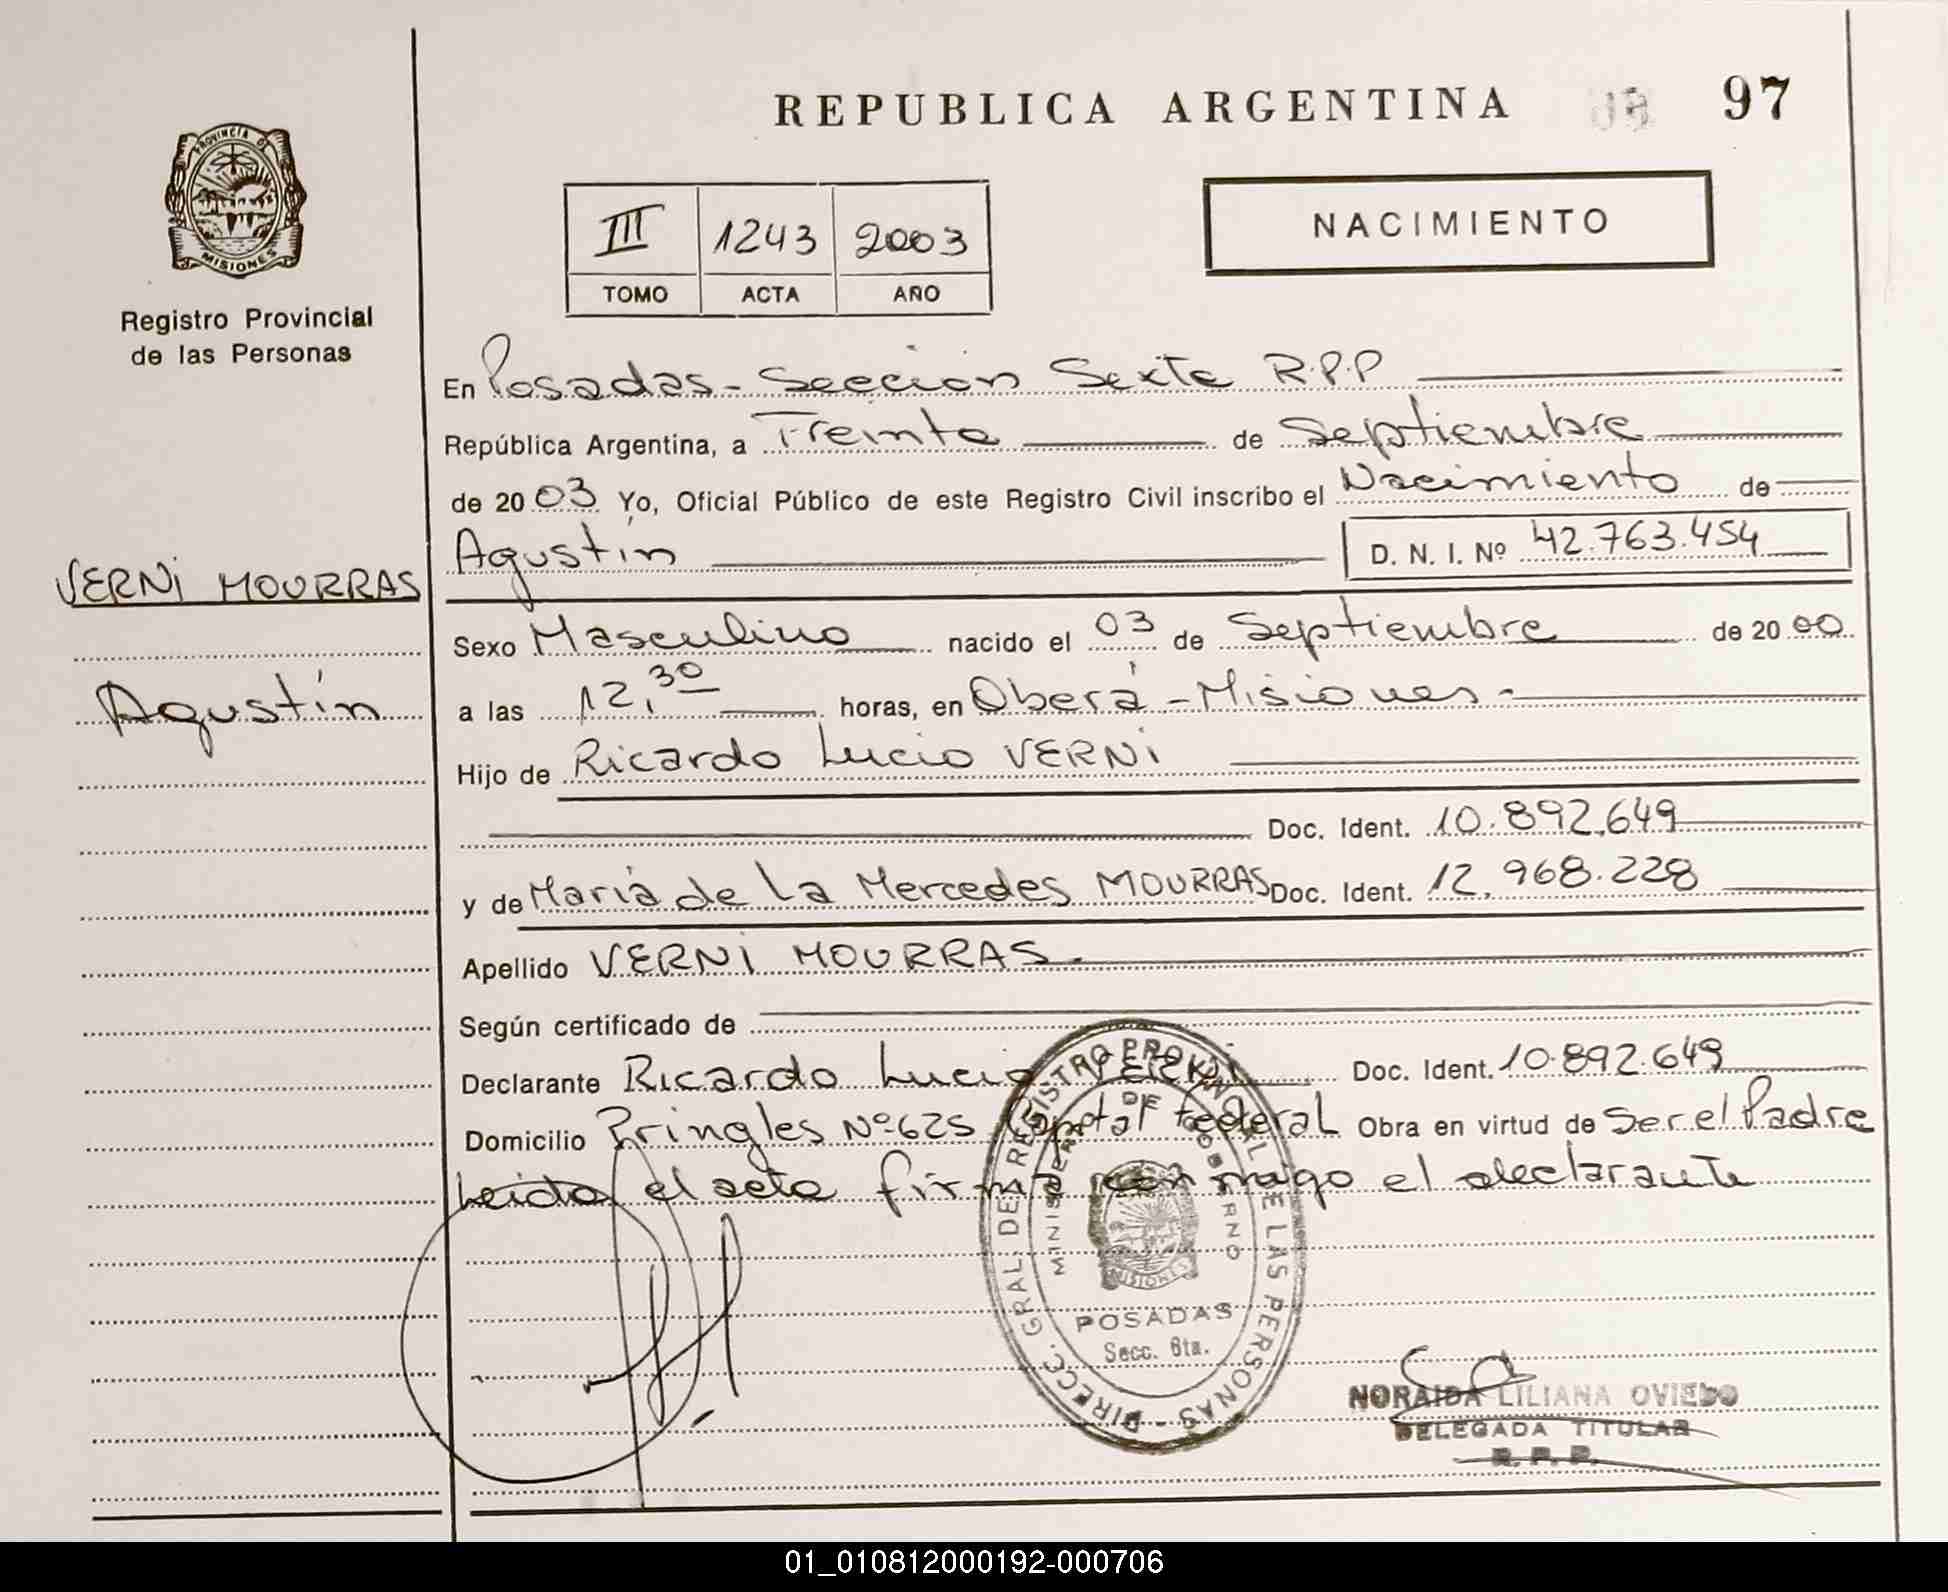 REPUBLICA ARGENTINA 97
PROVINCIA DE
MISIONES
Registro Provincial
de las Personas
III 1243 2003
TOMO ACTA AÑO
NACIMIENTO
En Posadas - Sección Sexta R.P.P
República Argentina, a Treinta de Septiembre
de 2003 Yo, Oficial Público de este Registro Civil inscribo el Nacimiento de
Agustín D. N. I. Nº 42.763.454
VERNI MOURRAS
Agustín
Sexo Masculino nacido el 03 de Septiembre de 2000
a las 12,30 horas, en Oberá - Misiones -
Hijo de Ricardo Lucio VERNI
Doc. Ident. 10.892.649
y de María de La Mercedes MOURRAS Doc. Ident. 12.968.228
Apellido VERNI MOURRAS.
Según certificado de
Declarante Ricardo Lucio VERNI Doc. Ident. 10.892.649
Domicilio Pringles Nº 625 Capital Federal Obra en virtud de Ser el Padre
Leida el acta firma con migo el declarante
DIRECC. GRAL. DE REGISTRO PROVINCIAL DE LAS PERSONAS -
MINISTERIO DE GOBIERNO
MISIONES
POSADAS
Secc. 6ta.
NORAIDA LILIANA OVIEDO
DELEGADA TITULAR
R. P. P.
01_010812000192-000706